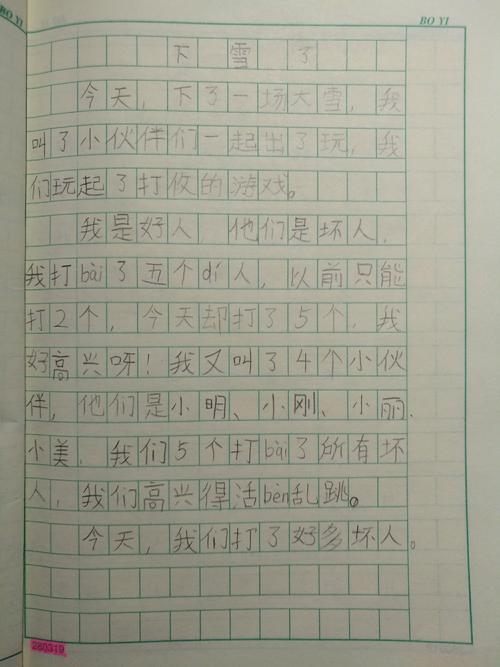 BO YI
BO YI
下雪了
今天，下了一场大雪，我
叫了小伙伴们一起出了玩，我
们玩起了打仗的游戏。
我是好人，他们是坏人，
我打bài了五个dí人，以前只能
打2个，今天却打了5个，我
好高兴呀！我又叫了4个小伙
伴，他们是小明、小刚、小丽、
小美，我们5个打bài了所有坏
人，我们高兴得活bèn乱跳。
今天，我们打了好多坏人。
280319